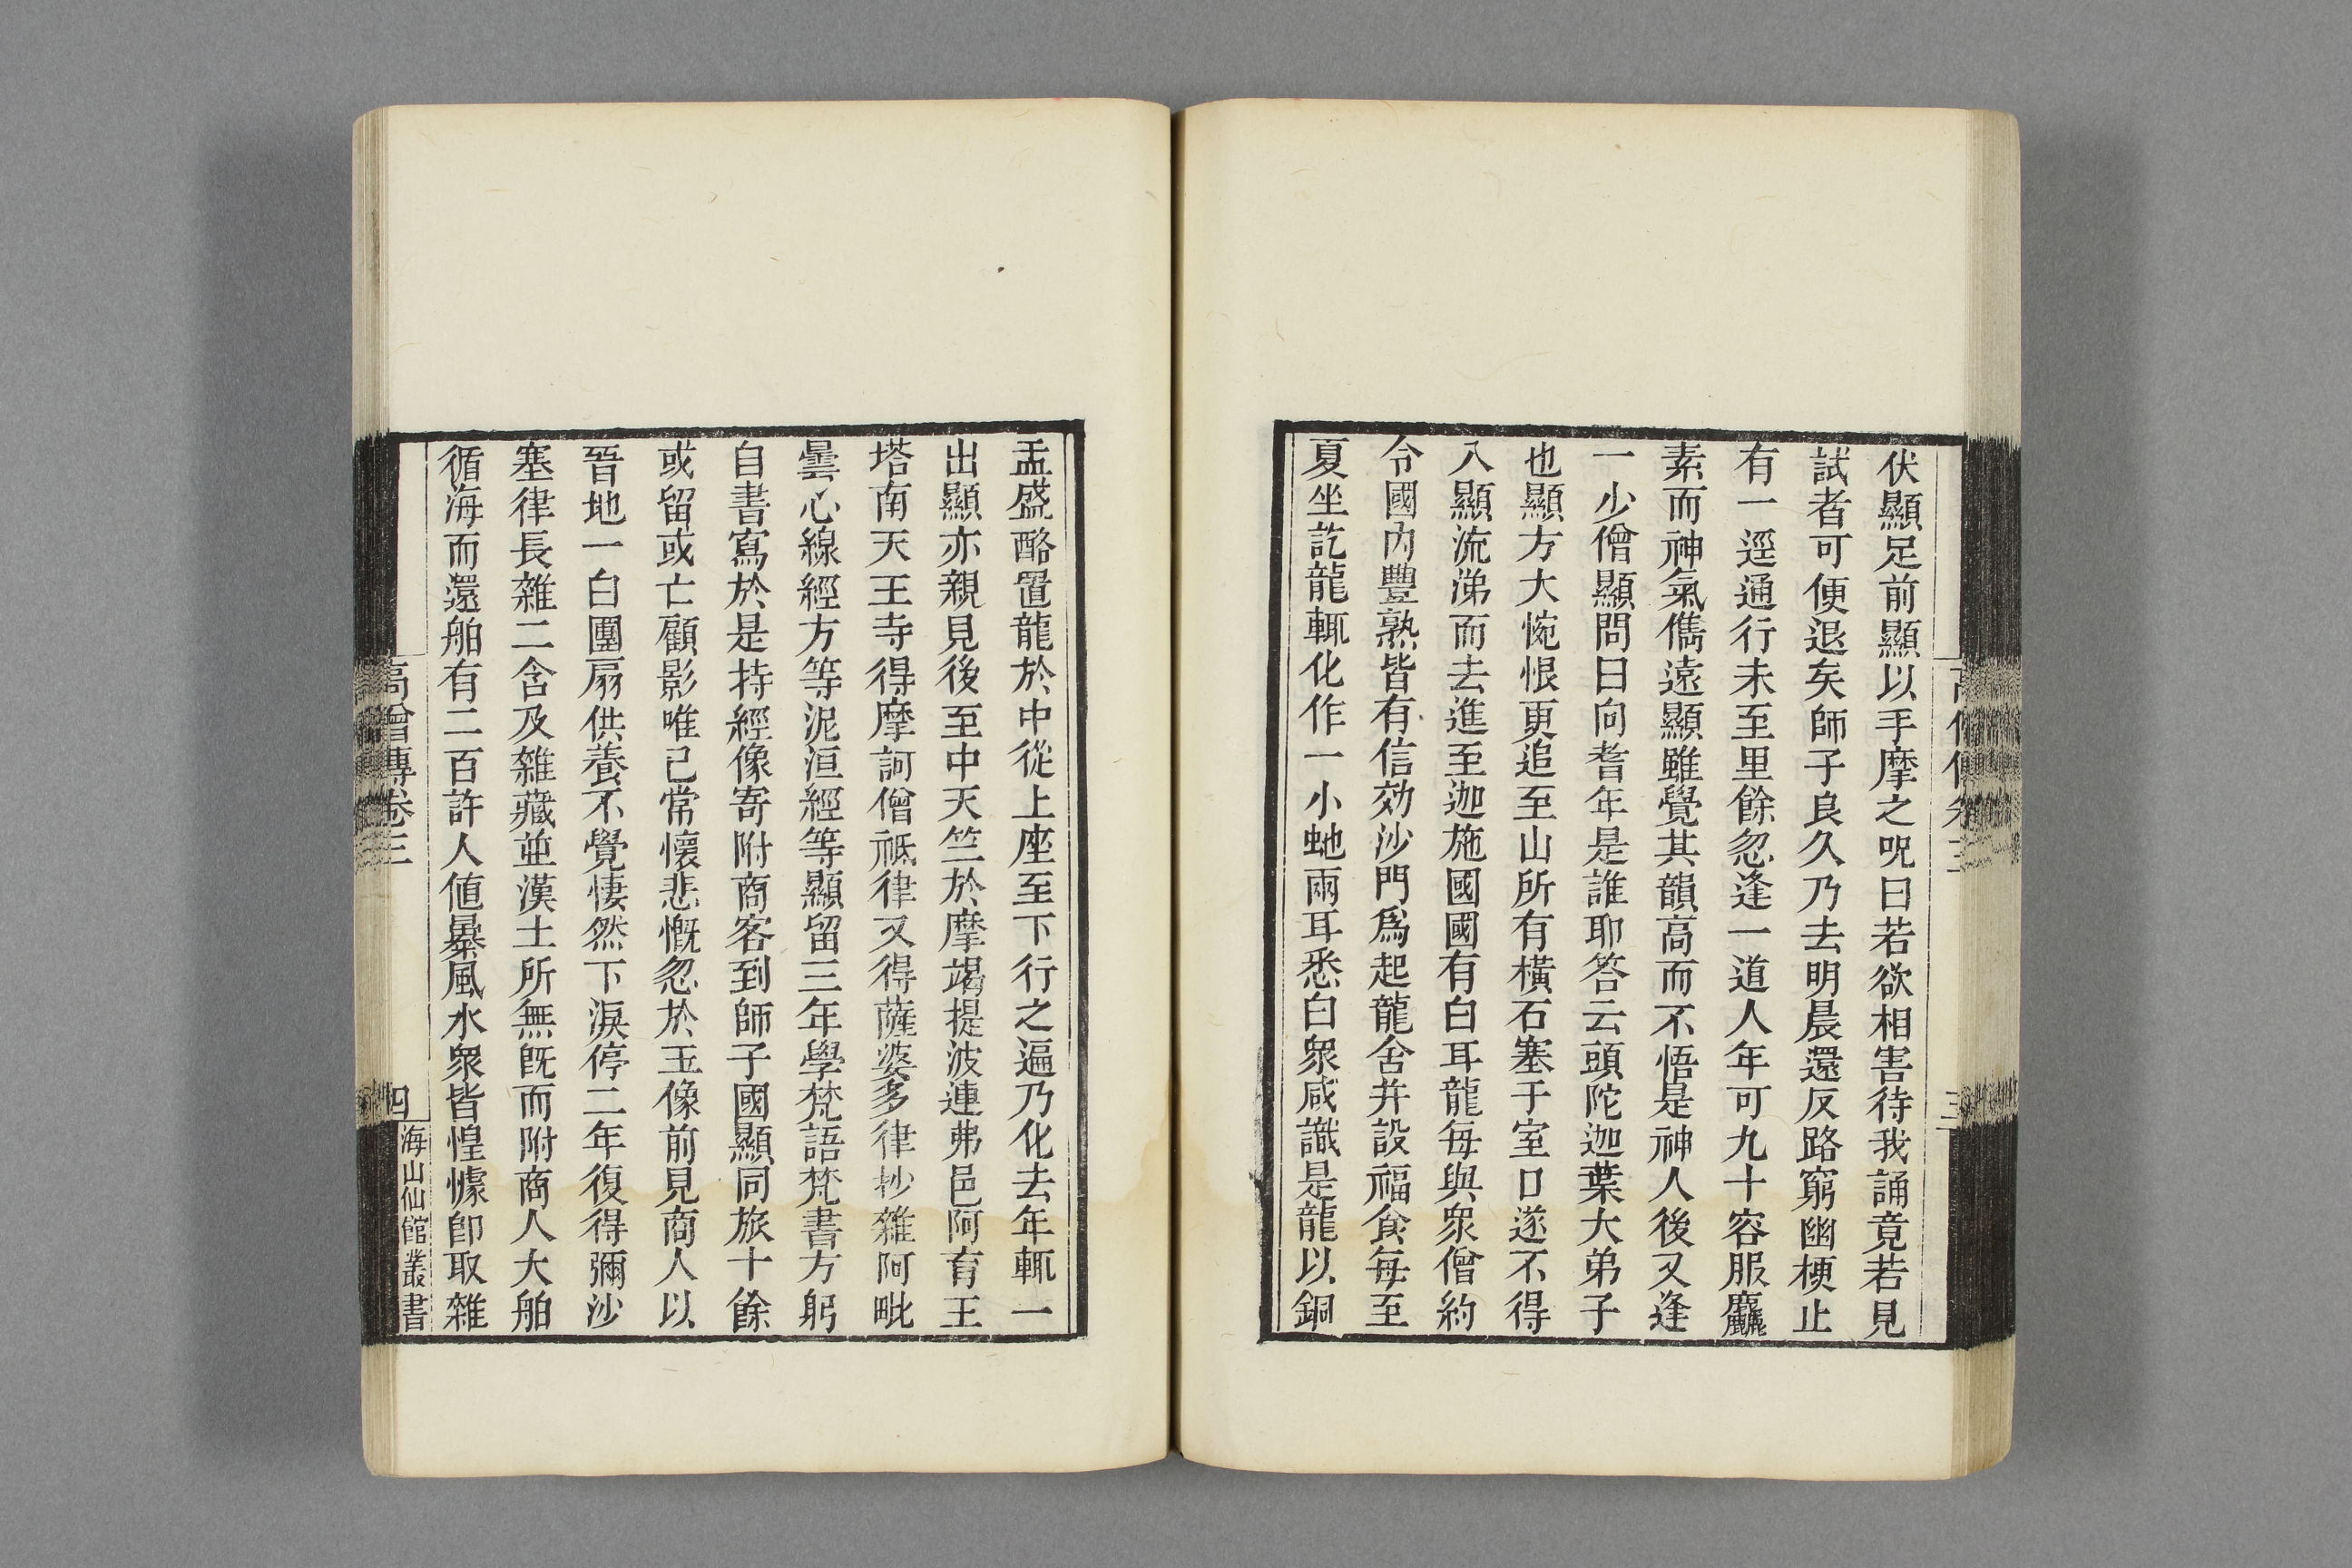 伏顯足前顯以手摩之呪曰若欲相害待我誦竟若見
試者可便退矣師子良久乃去明晨還反路窮幽梗止
有一逕通行未至里餘忽逢一道人年可九十容服麤
素而神氣儁遠顯雖覺其韻高而不悟是神人後又逢
一少僧顯問曰向耆年是誰耶答云頭陀迦葉大弟子
也顯方大惋恨更追至山所有橫石塞于室口遂不得
入顯流涕而去進至迦施國國有白耳龍每與眾僧約
令國內豐熟皆有信効沙門為起龍舍并設福食每至
夏坐訖龍輒化作一小虵兩耳悉白眾咸識是龍以銅
高僧傳卷三
三
盂盛酪置龍於中從上座至下行之遍乃化去年輒一
出顯亦親見後至中天竺於摩竭提波連弗邑阿育王
塔南天王寺得摩訶僧祗律又得薩婆多律抄雜阿毗
曇心線經方等泥洹經等顯留三年學梵語梵書方躬
自書寫於是持經像寄附商客到師子國顯同旅十餘
或留或亡顧影唯已常懷悲慨忽於玉像前見商人以
晉地一白團扇供養不覺悽然下淚停二年復得彌沙
塞律長雜二含及雜藏並漢土所無旣而附商人大舶
循海而還舶有二百許人值暴風水眾皆惶懅卽取雜
高僧傳卷三
四
海山仙館叢書